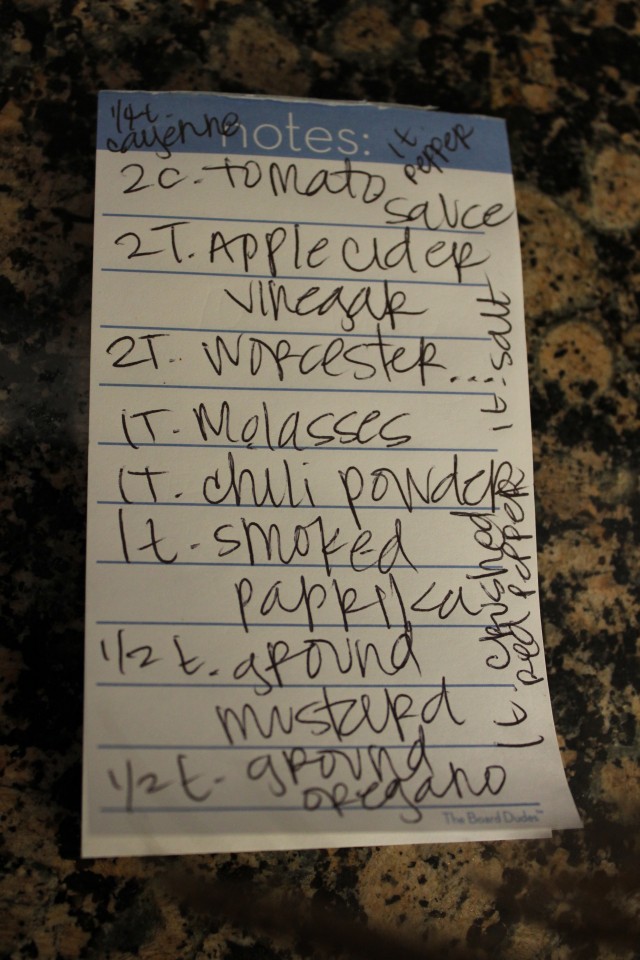 1/4 t.
cayenne
notes:
1t.
pepper
2c. tomato
sauce
2T. Apple cider
vinegar
2T. Worcester...
1T. Molasses
1T. chili powder
1t. smoked
paprika
1/2 t. ground
mustard
1/2 t. ground
oregano
1t. salt
1t. crushed
red pepper
The Board Dudes™